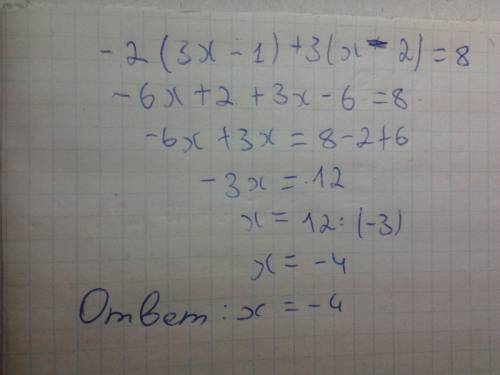 -2(3x-1)+3(x-2)=8
-6x+2+3x-6=8
-6x+3x=8-2+6
-3x=12
x=12:(-3)
x=-4
Ответ: x=-4